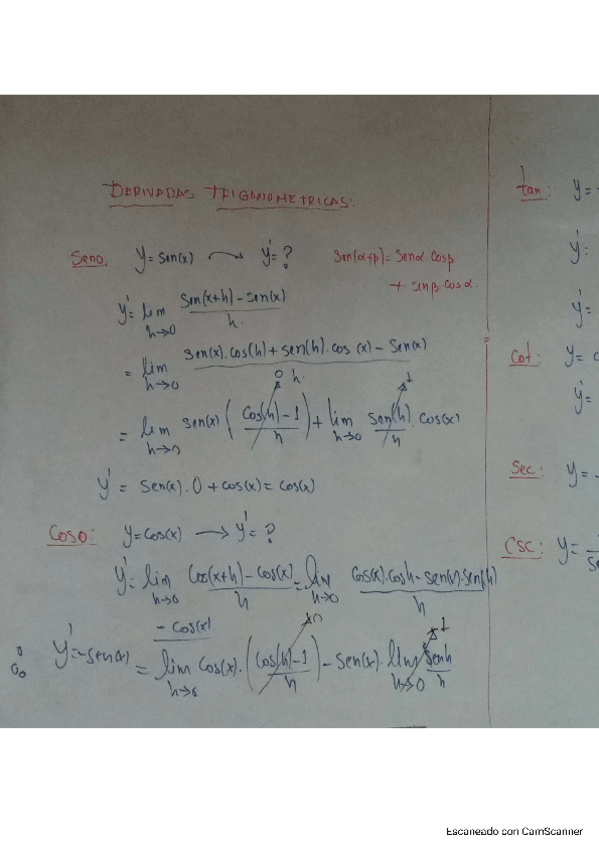 DERIVADAS TRIGONOMETRICAS:
Seno. y=Sen(x) → y'=? Sen(α+β)=Senα.cosβ
+ sinβ cosα.
y'= lim h→0 Sen(x+h)-sen(x) / h.
= lim h→0 Sen(x).cos(h)+sen(h).cos(x)-Sen(x) / h.
= lim h→0 sen(x) (cos(h)-1 / h) → 0 + lim h→0 sen(h) / h → 1 cos(x)
y' = sen(x).0 + cos(x) = cos(x)
Coso: y=cos(x) → y'=?
y'= lim h→0 Cos(x+h)-cos(x) / h = lim h→0 cos(x).cosh-sen(x).sen(h) / h
- cos(x)
∴ y'=-sen(x) = lim h→0 cos(x).(cos(h)-1 / h) → 0 - sen(x). lim h→0 senh / h → 1
tan: y=
y'=
y'=
Cot: y=
y'=
Sec: y=
CSC: y= 1
Escaneado con CamScanner